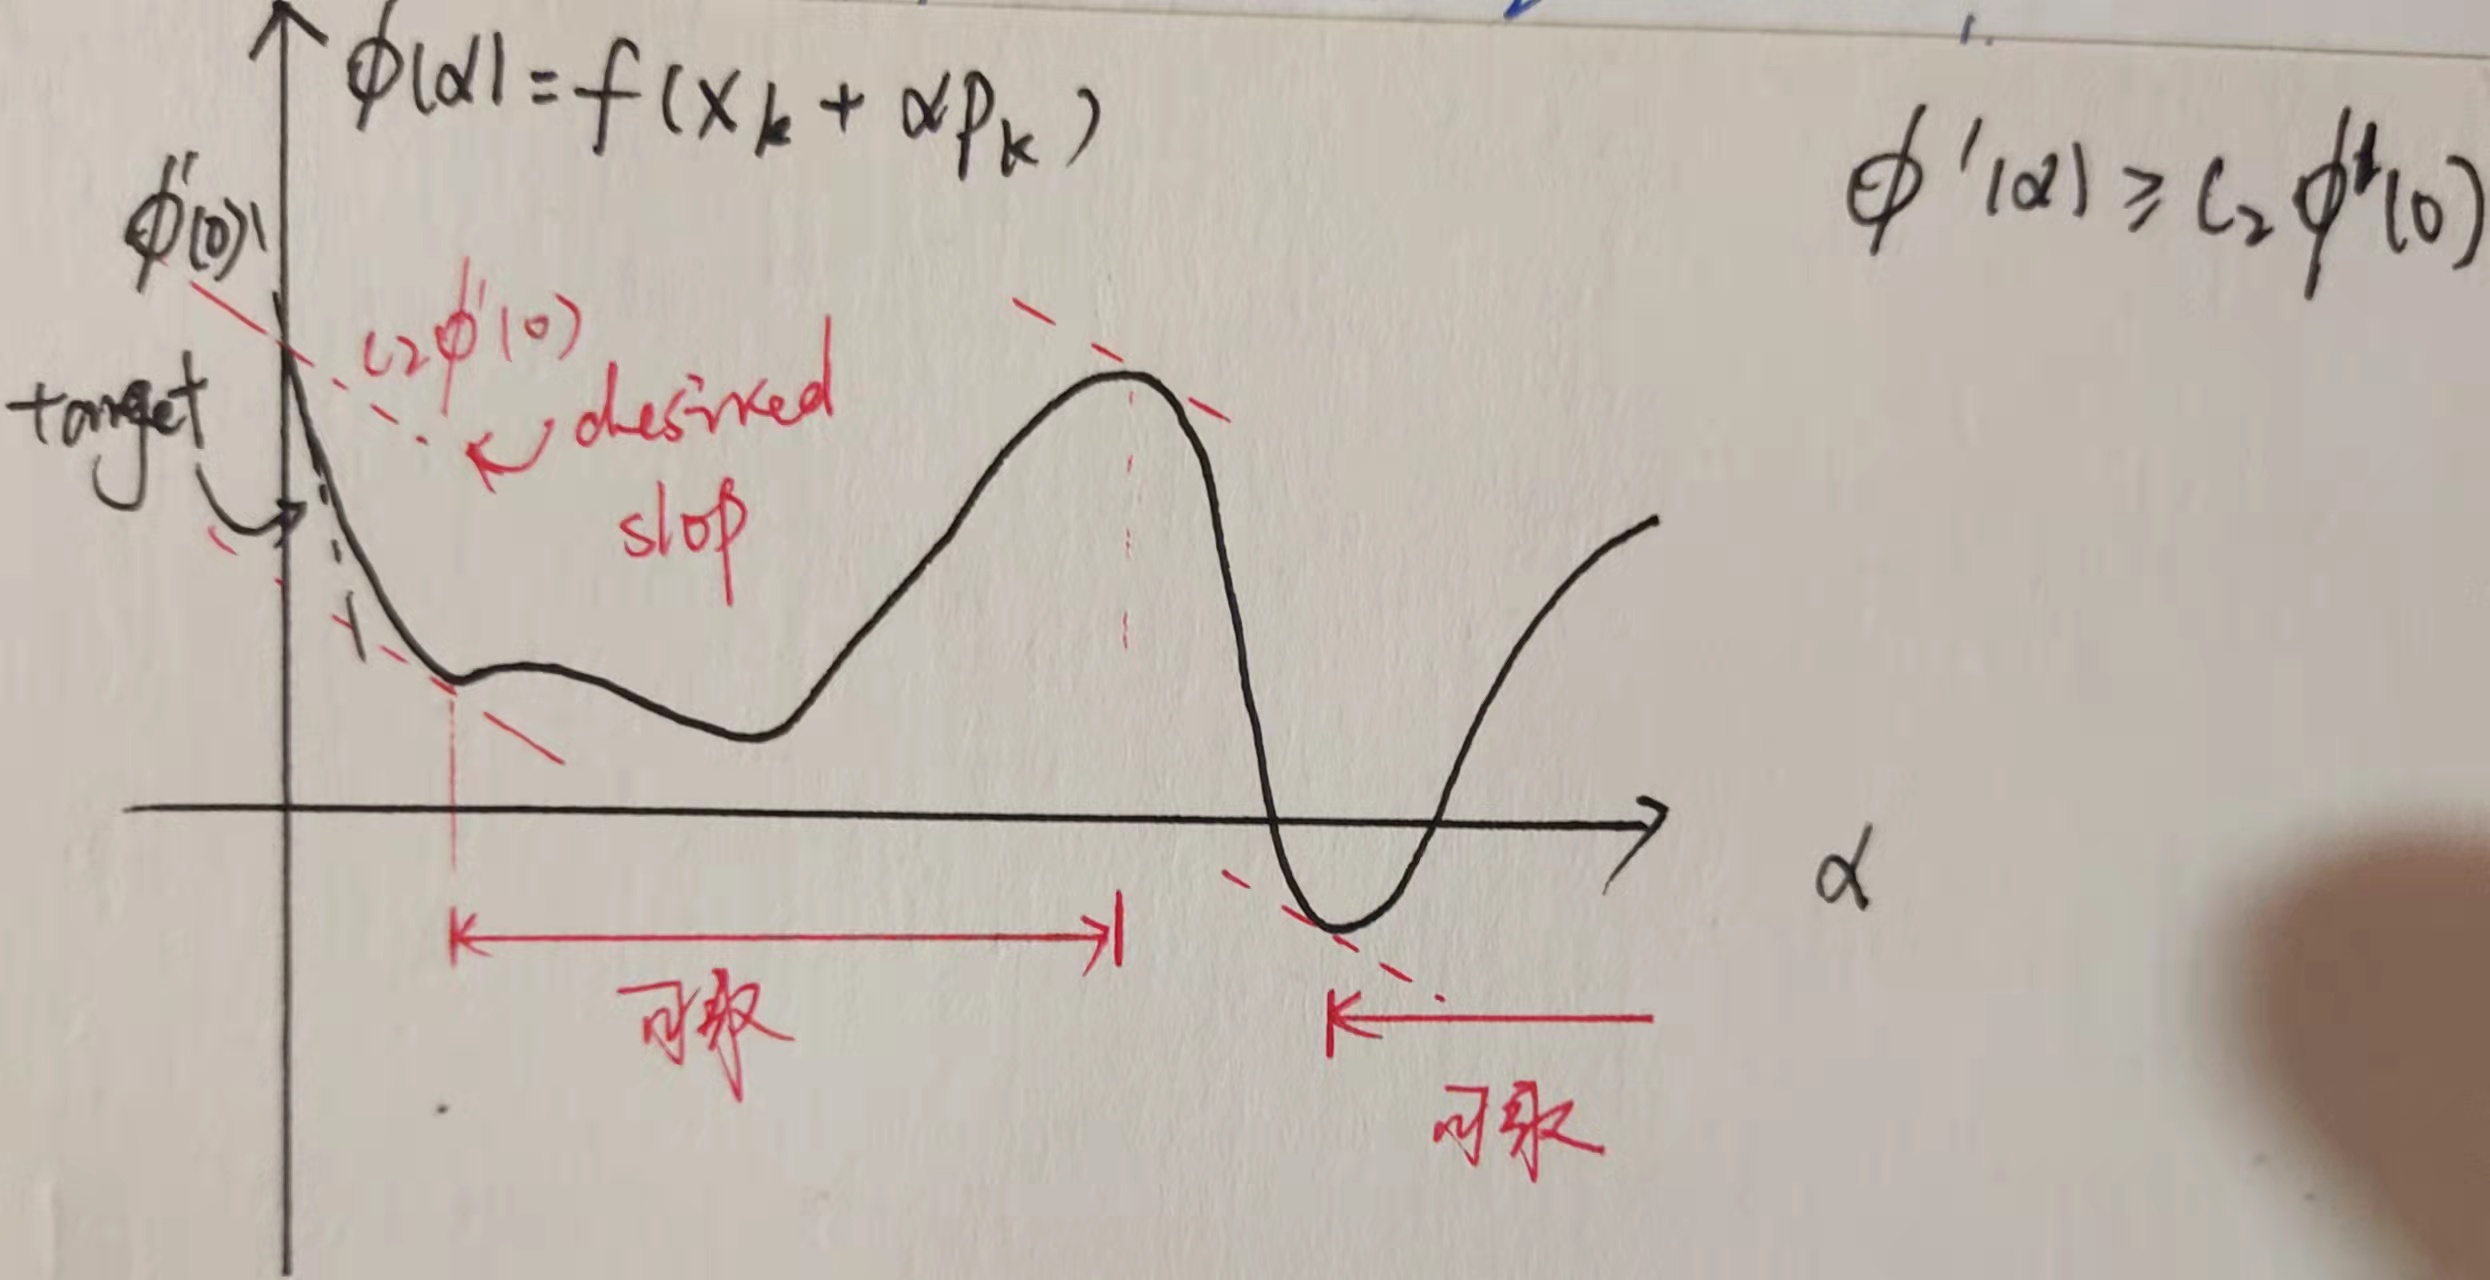 ϕ(α) = f(xₖ + αpₖ)
ϕ'(α) ≥ c₂ϕ'(0)
ϕ'(0)
c₂ϕ'(0)
target
desired
slop
α
可取
可取